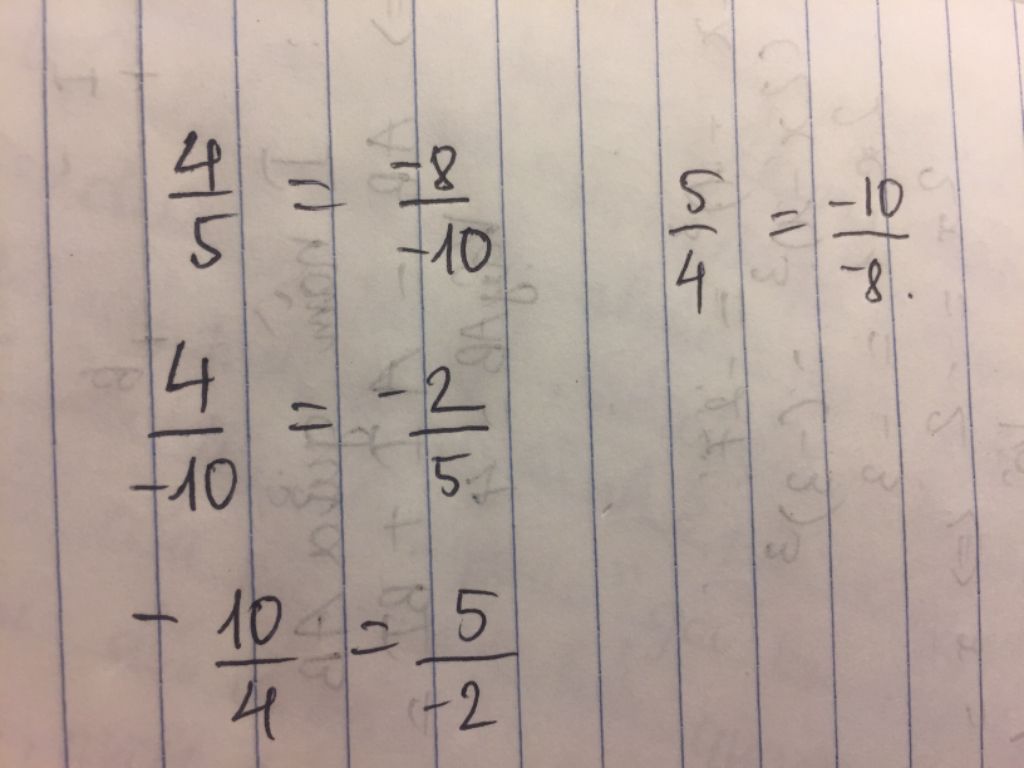 4/5 = -8/-10
5/4 = -10/-8.
4/-10 = -2/5
- 10/4 = 5/-2